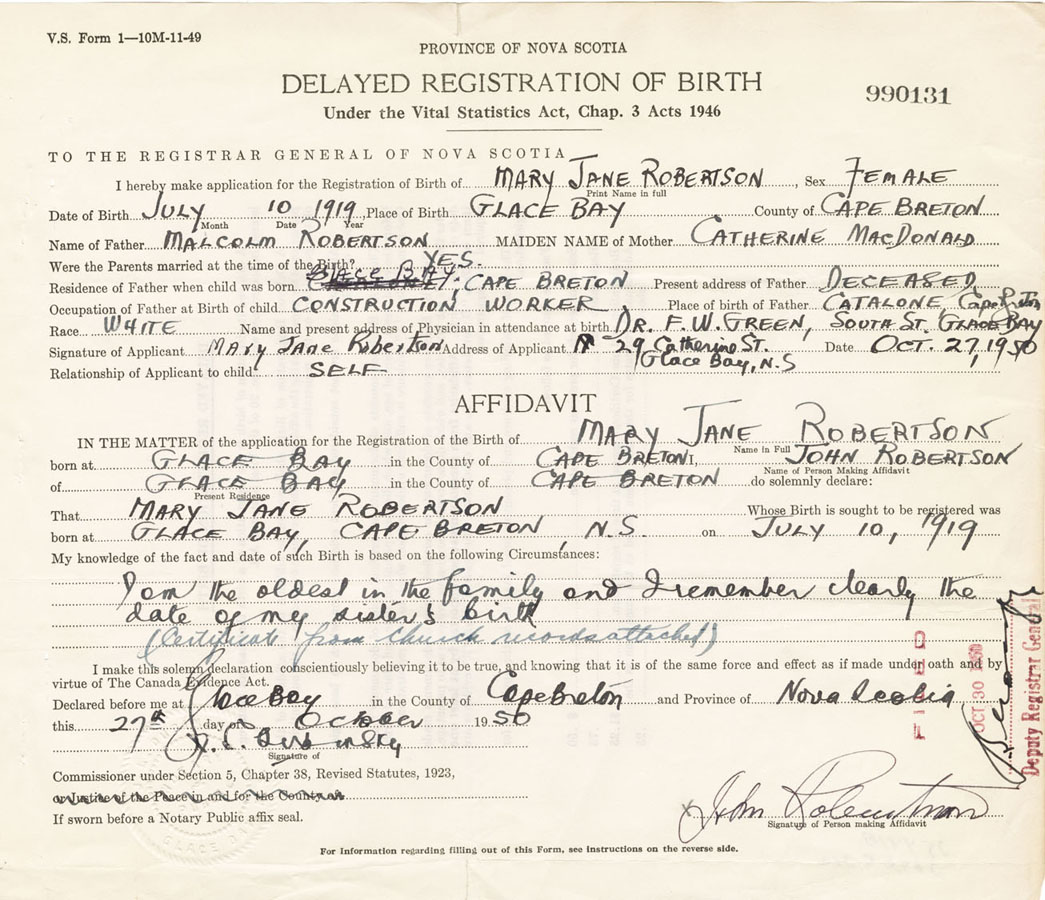 V.S. Form 1—10M-11-49
PROVINCE OF NOVA SCOTIA
DELAYED REGISTRATION OF BIRTH
990131
Under the Vital Statistics Act, Chap. 3 Acts 1946
TO THE REGISTRAR GENERAL OF NOVA SCOTIA
I hereby make application for the Registration of Birth of MARY JANE ROBERTSON, Sex FEMALE
Print Name in full
Date of Birth JULY 10 1919, Place of Birth GLACE BAY County of CAPE BRETON
Month Date Year
Name of Father MALCOLM ROBERTSON MAIDEN NAME of Mother CATHERINE MACDONALD
Were the Parents married at the time of the Birth? YES.
Residence of Father when child was born GLACE BAY, CAPE BRETON Present address of Father DECEASED
Occupation of Father at Birth of child CONSTRUCTION WORKER Place of birth of Father CATALONE, Cape Breton
Race WHITE Name and present address of Physician in attendance at birth DR. F.W. GREEN, SOUTH ST. GLACE BAY
Signature of Applicant Mary Jane Robertson Address of Applicant 29 Catherine St. Date OCT. 27, 1950
Glace Bay, N.S
Relationship of Applicant to child: SELF
AFFIDAVIT
IN THE MATTER of the application for the Registration of the Birth of MARY JANE ROBERTSON
Name in Full
born at GLACE BAY in the County of CAPE BRETON I, JOHN ROBERTSON
Name of Person Making Affidavit
of GLACE BAY in the County of CAPE BRETON do solemnly declare:
Present Residence
That MARY JANE ROBERTSON Whose Birth is sought to be registered was
born at GLACE BAY, CAPE BRETON, N.S. on JULY 10, 1919
My knowledge of the fact and date of such Birth is based on the following Circumstances:
I am the oldest in the family and I remember clearly the
date of my sister's birth
(Certificate from Church records attached)
I make this solemn declaration conscientiously believing it to be true, and knowing that it is of the same force and effect as if made under oath and by
virtue of The Canada Evidence Act.
Declared before me at Glace Bay in the County of Cape Breton and Province of Nova Scotia
this 27th day of October 1950
Signature of
Commissioner under Section 5, Chapter 38, Revised Statutes, 1923,
or Justice of the Peace in and for the County of
If sworn before a Notary Public affix seal.
John Robertson
Signature of Person making Affidavit
For Information regarding filling out of this Form, see instructions on the reverse side.
FILED
OCT 30 1950
Deputy Registrar General
GLACE BAY